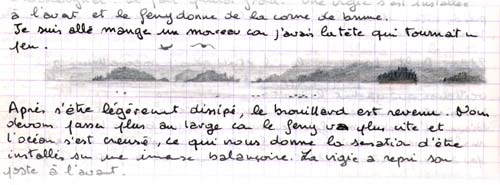 Une vigie s'est installée
à l'avant et le ferry donne de la corne de brume.
Je suis allé manger un morceau car j'avais la tête qui tournait un
peu.
Après s'être légèrement dissipé, le brouillard est revenu. Nous
devons passer plus au large car le ferry va plus vite et
l'océan s'est creusé, ce qui nous donne la sensation d'être
installés sur une immense balançoire. La vigie a repris son
poste à l'avant.